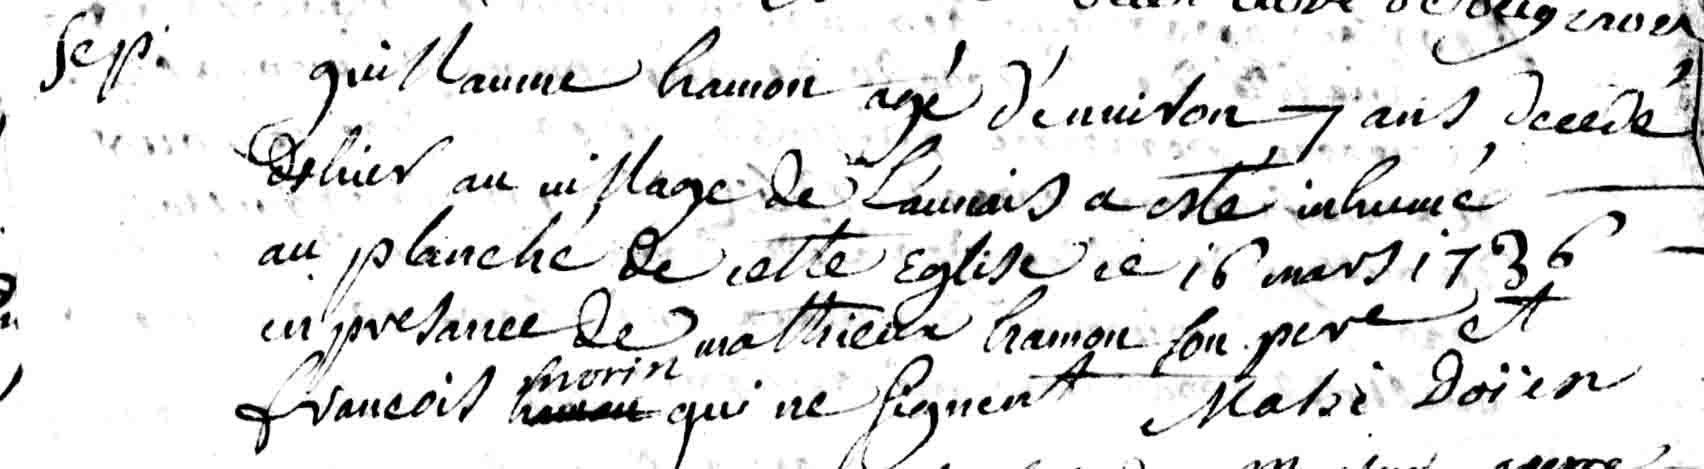 Sep.
guillaume hamon agé d'enuiron 7 ans decedé
d'hier au uillage de Launais a esté inhumé
au planché de cette Eglise ce 16 mars 1736
en presance de mathieux hamon son pere et
francois morin qui ne signent Mahé Doïen